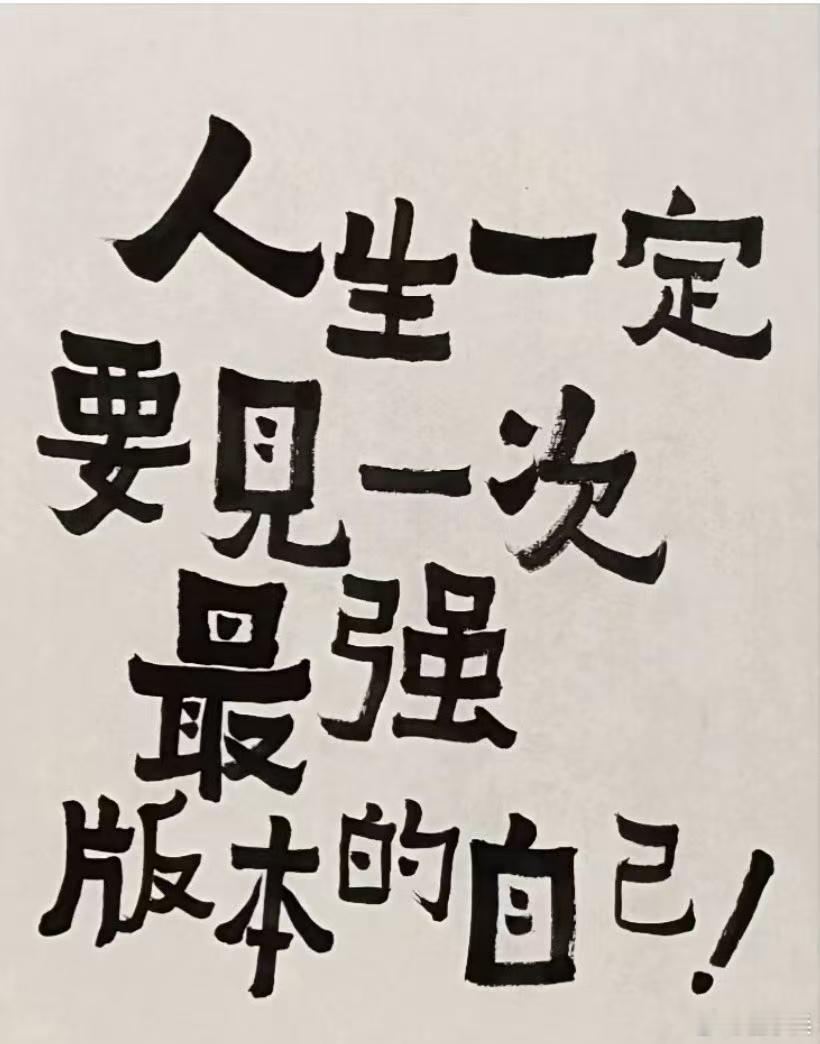 人生一定
要見一次
最强
版本的自己!